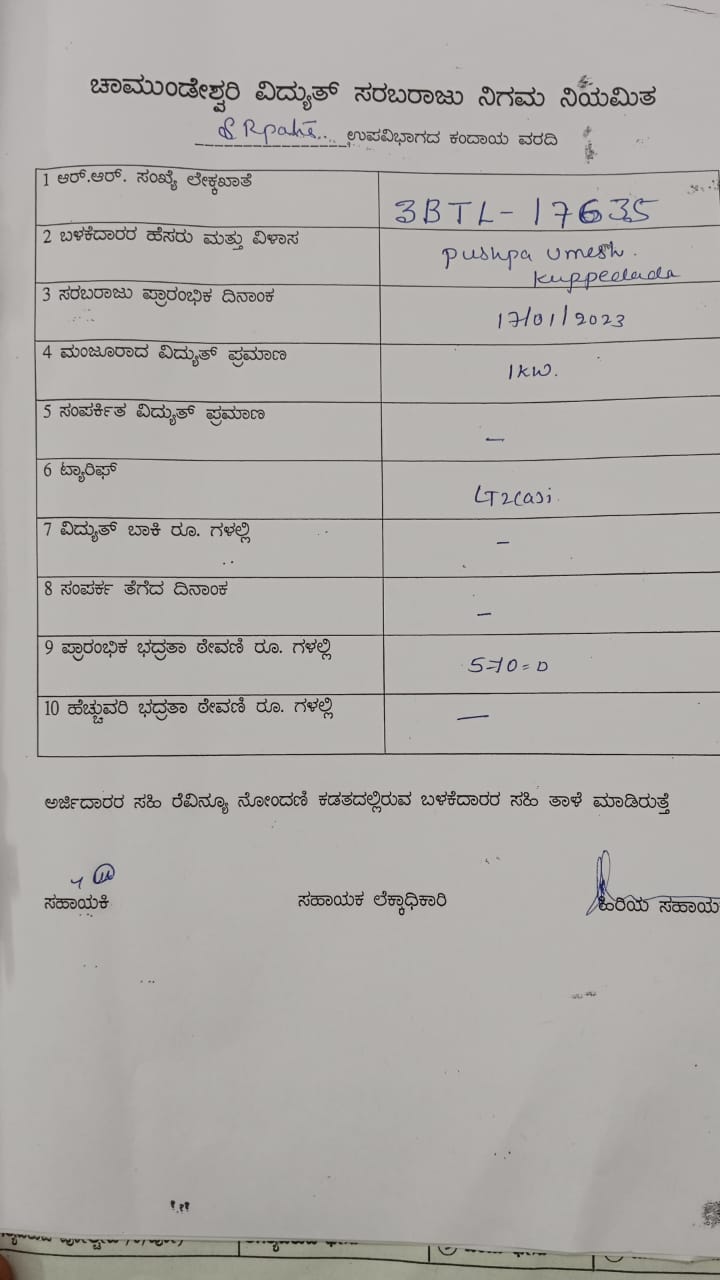 ಚಾಮುಂಡೇಶ್ವರಿ ವಿದ್ಯುತ್ ಸರಬರಾಜು ನಿಗಮ ನಿಯಮಿತ
ಉಪವಿಭಾಗದ ಕಂದಾಯ ವರದಿ
1 ಆರ್.ಆರ್. ಸಂಖ್ಯೆ ಲೆಕ್ಕಖಾತೆ
3BTL-17635
2 ಬಳಕೆದಾರರ ಹೆಸರು ಮತ್ತು ವಿಳಾಸ
pushpa umesh.
3 ಸರಬರಾಜು ಪ್ರಾರಂಭಿಕ ದಿನಾಂಕ
17/01/2023
4 ಮಂಜೂರಾದ ವಿದ್ಯುತ್ ಪ್ರಮಾಣ
1kw.
5 ಸಂಪರ್ಕಿತ ವಿದ್ಯುತ್ ಪ್ರಮಾಣ
—
6 ಟ್ಯಾರಿಫ್
LT2(a)i
7 ವಿದ್ಯುತ್ ಬಾಕಿ ರೂ. ಗಳಲ್ಲಿ
—
8 ಸಂಪರ್ಕ ತೆಗೆದ ದಿನಾಂಕ
—
9 ಪ್ರಾರಂಭಿಕ ಭದ್ರತಾ ಠೇವಣಿ ರೂ. ಗಳಲ್ಲಿ
570=0
10 ಹೆಚ್ಚುವರಿ ಭದ್ರತಾ ಠೇವಣಿ ರೂ. ಗಳಲ್ಲಿ
—
ಅರ್ಜಿದಾರರ ಸಹಿ ರೆವಿನ್ಯೂ ನೋಂದಣಿ ಕಡತದಲ್ಲಿರುವ ಬಳಕೆದಾರರ ಸಹಿ ತಾಳೆ ಮಾಡಿರುತ್ತೆ
ಸಹಾಯಕಿ ಸಹಾಯಕ ಲೆಕ್ಕಾಧಿಕಾರಿ ಹಿರಿಯ ಸಹಾಯ